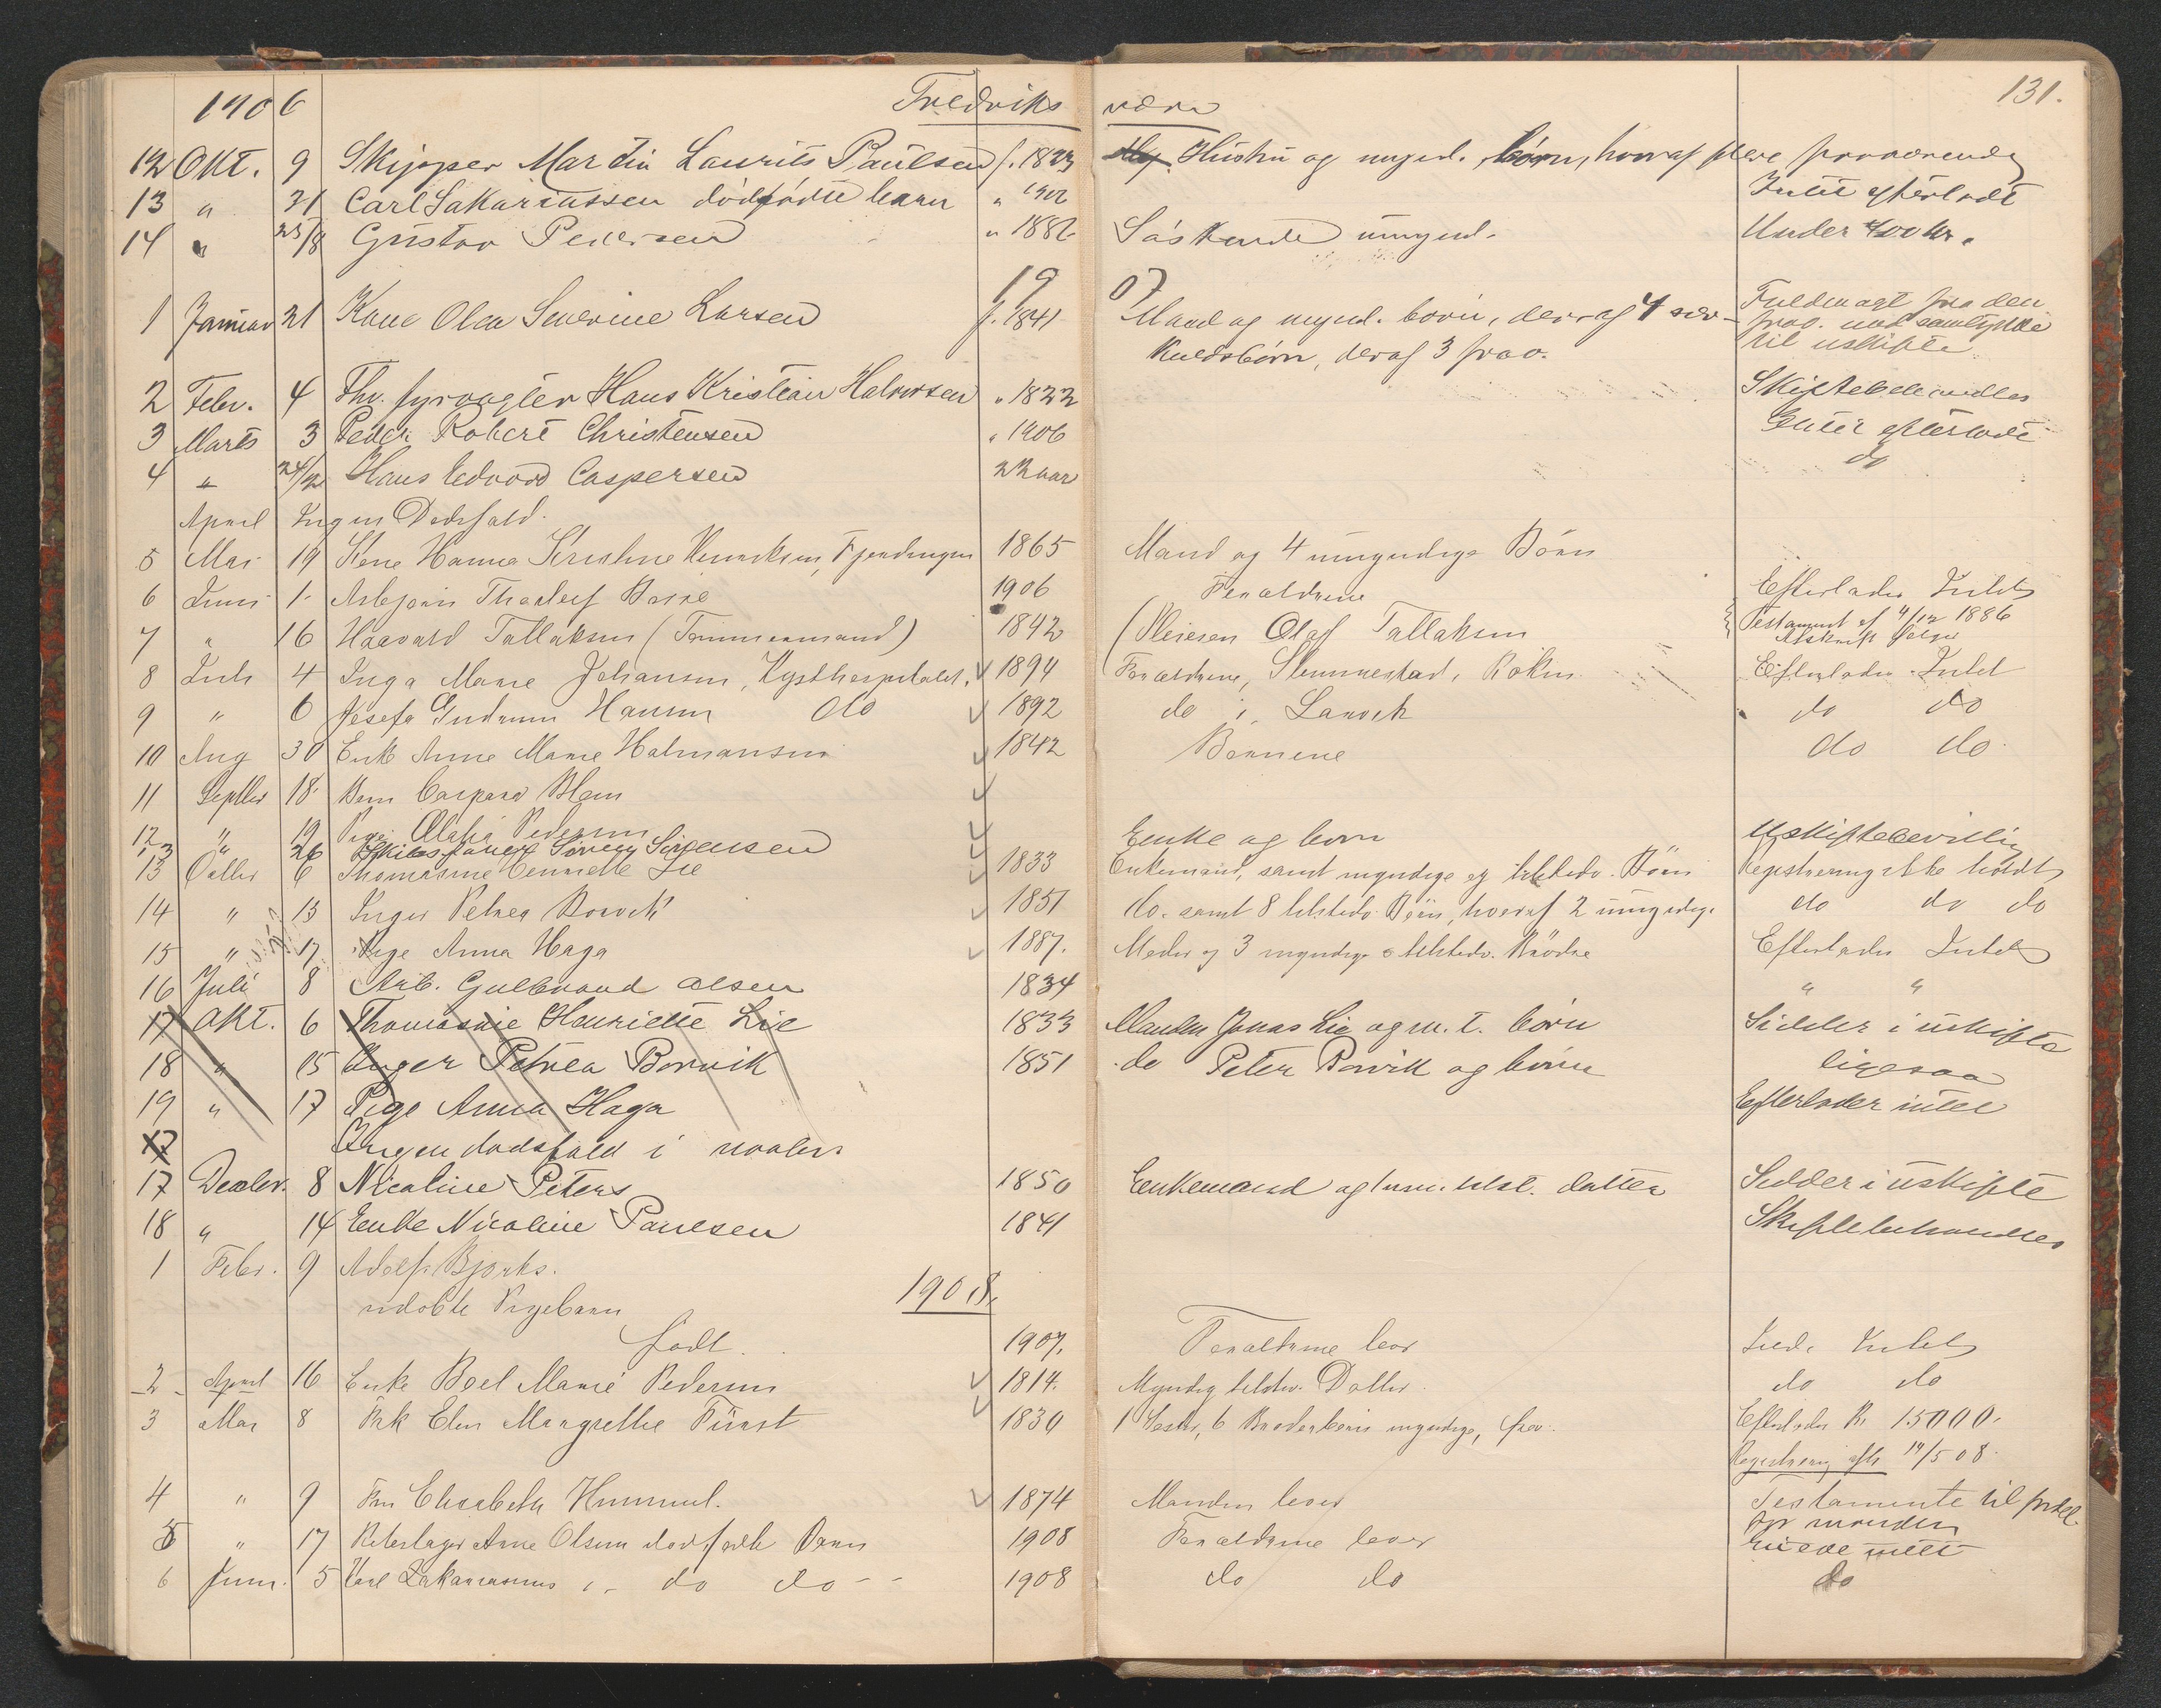 131.
1906 Fredriksværn
12 Okt. 9 Skipper Martin Laurits Paulsen f. 1823 Hustru og mynd. børn, hvoraf flere fraværende
13 " 21 Carl Sakariassen dødfødte barn " 1906 Intet efterladt
14 " 23/8 Gustav Pedersen " 1886 Søskende umynd. Under 400 kr.
1907
1 Januar 21 Kone Olea Severine Larsen f. 1841 Mand og mynd. børn, deraf 4 sær- Fuldmagt fra den
kuldsbørn, deraf 3 frav. frav. med samtykke
til uskifte
2 Febr. 4 Fhv. fyrvogter Hans Kristian Halvorsen " 1822 Skiftebehandles
3 Marts 3 Peder Robert Christensen " 1906 Intet efterladt
4 " 24/2 Hans Edvard Caspersen 22 aar do
April Ingen Dødsfald.
5 Mai 19 Kone Hanna Kristine Henriksen, Fjerdingen 1865 Mand og 4 umyndige Børn
6 Juni 1 Asbjørn Thorleif Basse 1906 Forældrene Efterlader Intet
7 " 16 Haavald Tallaksen (Tømmermand) 1842 Olaf Tallaksen Testament af 4/12 1886
Afskrift følger
8 Juli 4 Inga Marie Johansen, Kysthospitalet. 1894 Forældrene, Slemmestad, Røken Efterlader Intet
9 " 6 Josefa Gudrun Hansen do 1892 do i Larvik do do
10 Aug 30 Enke Anne Marie Halmansen 1842 Børnene do do
11 Septbr 18 Barn Caspara Blom
12 " 19 Pige Olafia Pedersen
13 " 26 Sørensen Enke og børn Uskiftebevilling
13 Octbr 6 Thomasine Henriette Lie 1833 Enkemand, samt myndige og tilstedv. Børn Registrering ikke holdt
14 " 15 Inger Petrea Borvik 1851 do. samt 8 tilstedv. Børn, hvoraf 2 umyndige do do do
15 " 17 Pige Anna Haga 1887. Moder og 3 myndige tilstedv. Brødre Efterlader Intet
16 Juli 8 Arb. Gulbrand Olsen 1834 " "
17 Okt. 6 Thomasine Henriette Lie 1833 Manden Jonas Lie og m. t. børn Sidder i uskifte
18 " 15 Inger Petrea Borvik 1851 do Peter Borvik og børn ligesaa
19 " 17 Pige Anna Haga Efterlader intet
17 Ingen dødsfald i novbr.
17 Decbr. 8 Nicoline Peters 1850 Enkemand og tilst. datter Sidder i uskifte
18 " 14 Enke Nicoline Paulsen 1841 Skiftebehandles
1 Febr. 9 Adolf Bjørks.
1908.
udøbte Pigebarn
født 1907. Forældrene lever Intet
2 April 16 Enke Boel Marie Pedersen 1814. Myndig tilstv. Datter do do
3 Mai 8 Frk Elen Margrethe Fürst 1830 1 Søster, 6 Broderbørn myndige, frav. Efterlader Kr 15000.
Registrering afh 19/5 08.
4 " 9 Fru Elisabeth Hummel. 1874 Manden lever Testamente til fordel
for manden
5 " 17 Anne Olsen dødfødte Barn 1908 Forældrene lever intet
6 Juni. 5 Karl Zakariasens do do 1908 do do do